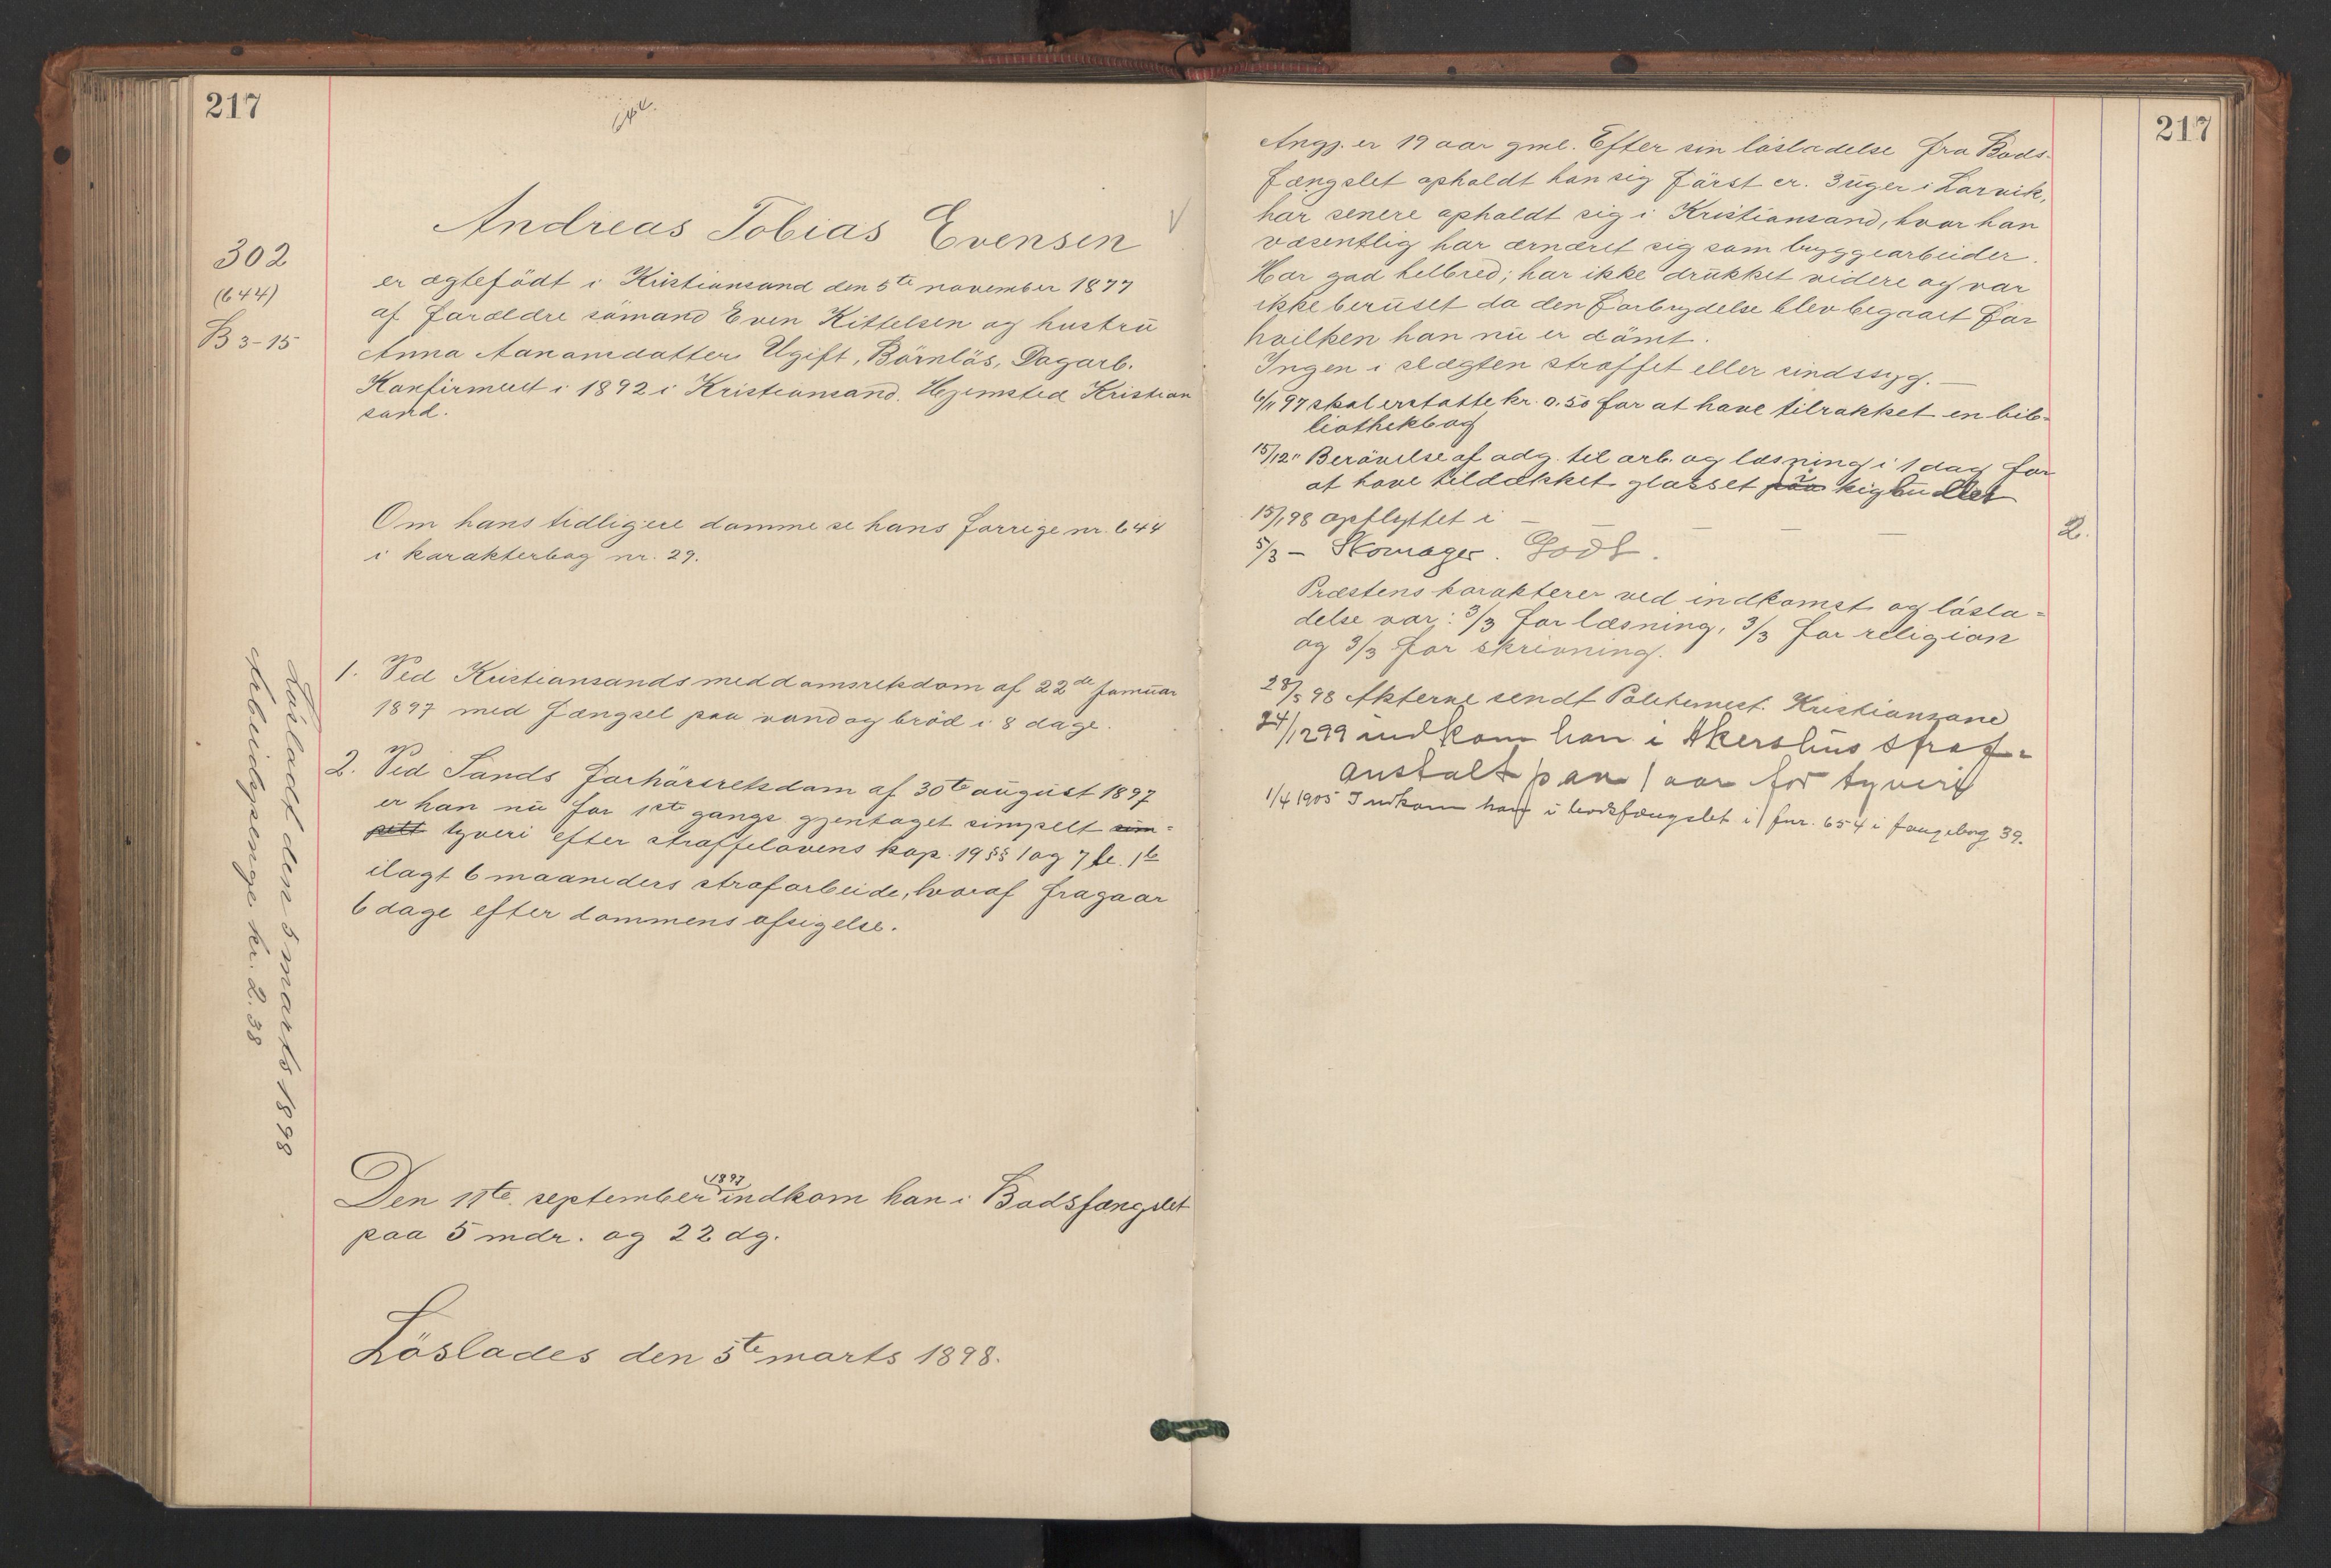 217
644.
Andreas Tobias Evensen
302
(644)
B 3-15
er ægtefödt i Kristiansand den 5te november 1877
af forældre sömand Even Kittelsen og hustru
Anna Aanonsdatter. Ugift, Börnlös, Dagarb.
Konfirmeret i 1892 i Kristiansand. Hjemsted Kristian
sand.
Om hans tidligere domme se hans forrige nr. 644
i karakterbog nr. 29.
1. Ved Kristiansands meddomsretsdom af 22de januar
1897 med fængsel paa vand og bröd i 8 dage.
2. Ved Sands forhörsretsdom af 30te august 1897
er han nu for 1ste gangs gjentaget simpelt sim-
pelt tyveri efter straffelovens kap. 19 §§ 1 og 7 le. 1te
ilagt 6 maaneders strafarbeide, hvoraf fragaar
6 dage efter dommens afsigelse.
Lösladt den 5 marts 1898
Arbeidspenge kr. 2.38
Den 11te september 1897 indkom han i Bodsfængslet
paa 5 mdr. og 22 dg.
Löslades den 5te marts 1898.
217
Angj. er 19 aar gml. Efter sin lösladelse fra Bods-
fængslet opholdt han sig först cr. 3 uger i Larvik,
har senere opholdt sig i Kristiansand, hvor han
væsentlig har ernæret sig som bryggearbeider.
Har god helbred; har ikke drukket videre og var
ikke beruset da den forbrydelse blev begaaet for
hvilken han nu er dömt.
Ingen i slægten straffet eller sindssyg. —
6/11 97 skal erstatte kr. 0.50 for at have tilrakket en bib-
liothekbog
15/12 " Berövelse af adg. til arb. og læsning i 1 dag for
at have tildækket glasset paa i kighullet
15/1 98 opflyttet i — — — — 2.
5/3 — Skomager. Godt.
Præstens karakterer ved indkomst og lösla-
delse var: 3/3 for læsning, 3/3 for religion
og 3/3 for skrivning.
28/5 98 Akterne sendt Politimest. Kristianzand
24/12 99 indkom han i Akershus straf-
anstalt paa 1 aar for tyveri
1/4 1905 Indkom han i bodsfængslet i fnr. 654 i fangebog 39.